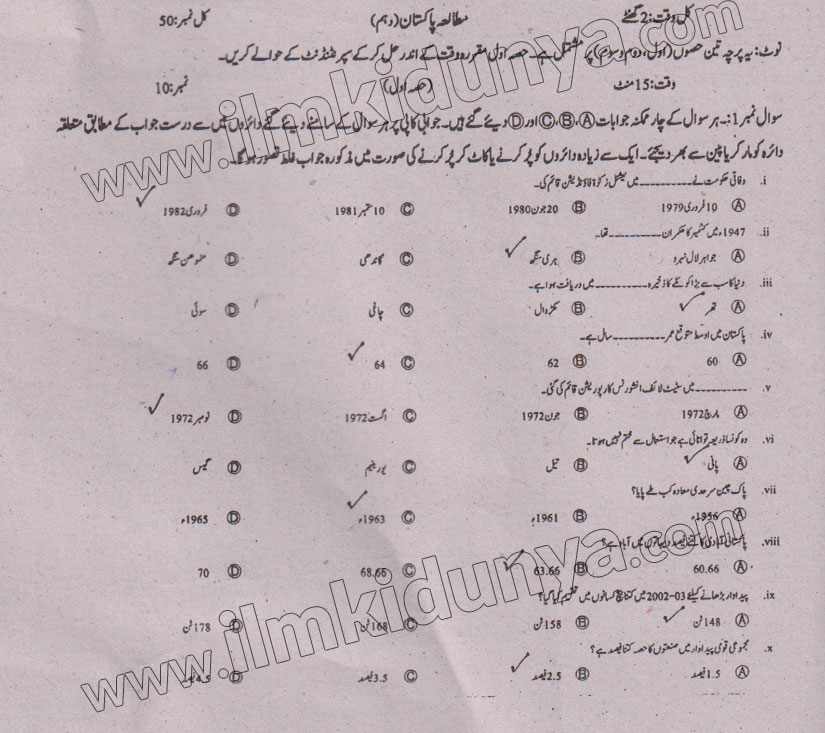 کل وقت: 2 گھنٹے مطالعہ پاکستان (دہم) کل نمبر: 50
نوٹ: یہ پرچہ تین حصوں (اول، دوم و سوم) پر مشتمل ہے۔ حصہ اول مقررہ وقت کے اندر حل کر کے سپرنٹنڈنٹ کے حوالے کریں۔
وقت: 15 منٹ (حصہ اول) نمبر: 10
سوال نمبر 1:۔ ہر سوال کے چار ممکنہ جوابات A، B، C اور D دیئے گئے ہیں۔ جوابی کاپی پر ہر سوال کے سامنے دیئے گئے دائروں میں سے درست جواب کے مطابق متعلقہ
دائرہ کو مارکر یا پین سے بھر دیجئے۔ ایک سے زیادہ دائروں کو پُر کرنے یا کاٹ کر پُر کرنے کی صورت میں مذکورہ جواب غلط تصور ہوگا۔
i. وفاقی حکومت نے ---------- میں نیشنل زکوٰۃ فاؤنڈیشن قائم کی۔
A 10 فروری 1979 B 20 جون 1980 C 10 ستمبر 1981 D فروری 1982
ii. 1947ء میں کشمیر کا حکمران ---------- تھا۔
A جواہر لال نہرو B ہری سنگھ C گاندھی D منموہن سنگھ
iii. دنیا کا سب سے بڑا کوئلے کا ذخیرہ ---------- میں دریافت ہوا ہے۔
A تھر B کھڑوال C چاغی D سوئی
iv. پاکستان میں اوسط متوقع عمر ---------- سال ہے۔
A 60 B 62 C 64 D 66
v. ---------- میں سٹیٹ لائف انشورنس کارپوریشن قائم کی گئی۔
A مارچ 1972 B جون 1972 C اگست 1972 D نومبر 1972
vi. وہ کونسا ذریعہ توانائی ہے جو استعمال سے ختم نہیں ہوتا۔
A پانی B تیل C یورینیم D گیس
vii. پاک چین سرحدی معاہدہ کب طے پایا؟
A 1956ء B 1961ء C 1963ء D 1965ء
viii. پاکستانی آبادی کا کتنے فیصد دیہاتوں میں آباد ہے؟
A 60.66 B 63.66 C 68.66 D 70
ix. پیداوار بڑھانے کیلئے 03-2002 میں کتنا بیج کسانوں میں تقسیم کیا گیا؟
A 148 ٹن B 158 ٹن C 168 ٹن D 178 ٹن
x. مجموعی قومی پیداوار میں صنعتوں کا حصہ کتنا فیصد ہے؟
A 1.5 فیصد B 2.5 فیصد C 3.5 فیصد D 4.5 فیصد
www.ilmkidunya.com
www.ilmkidunya.com